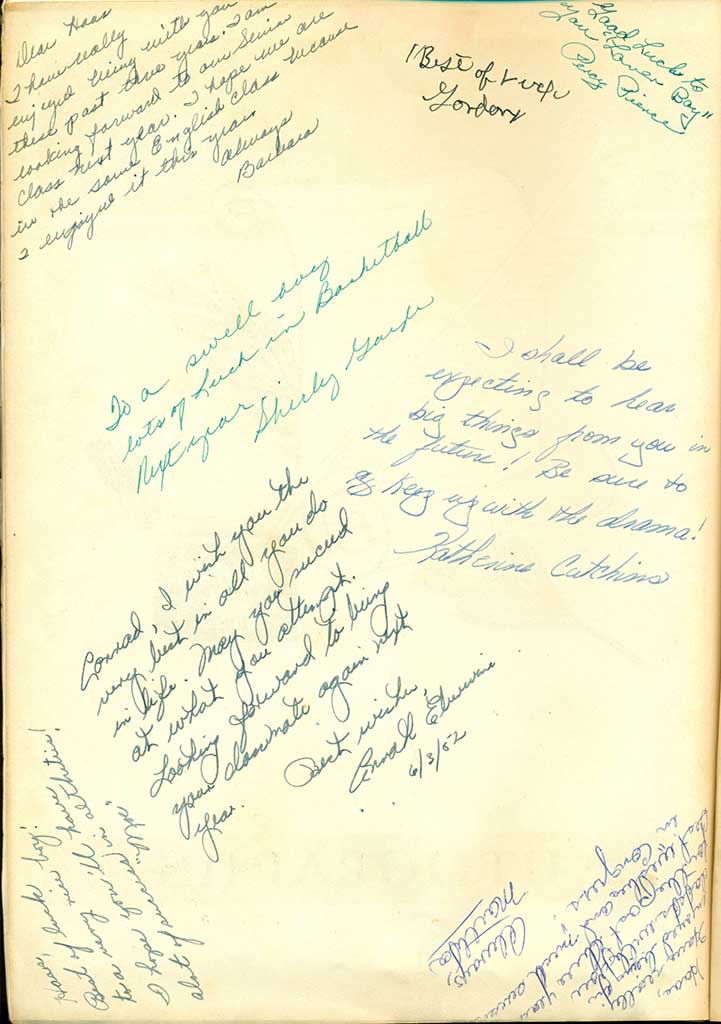 Dear Haas
I have really
enjoyed being with you
these past three years. I am
looking forward to our Senior
class next year. I hope we are
in the same English class because
I enjoyed it this year.
Always
Barbara
Best of luck
Gordon
Good Luck to
You Lover Boy"
Percy Pierce
To a swell guy
lots of luck in Basketball
Next year Shirley
I shall be
expecting to hear
big things from you in
the future! Be sure to
keep up with the drama!
Katherine Cutchins
Conrad, I wish you the
very best in all you do
in life. May you succeed
at what you attempt.
Looking forward to being
your classmate again next
year. Best wishes,
6/3/52
Haas,
Best of luck
to a very nice boy!
I hope you'll have
a lot of success in
Haas,
really
enjoyed being
with
three years
and
in Congress!
Always,
Matilda